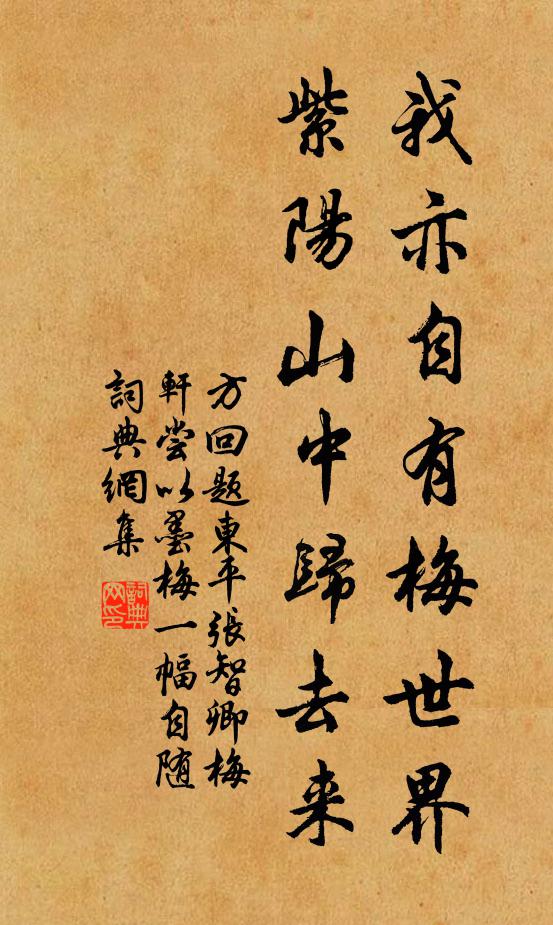 我亦自有梅世界
紫陽山中歸去来
方回题東平張智卿梅
軒嘗以墨梅一幅自随
詞典網集
詞典网印